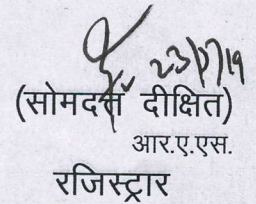 23/7/19
(सोमदत्त दीक्षित)
आर.ए.एस.
रजिस्ट्रार